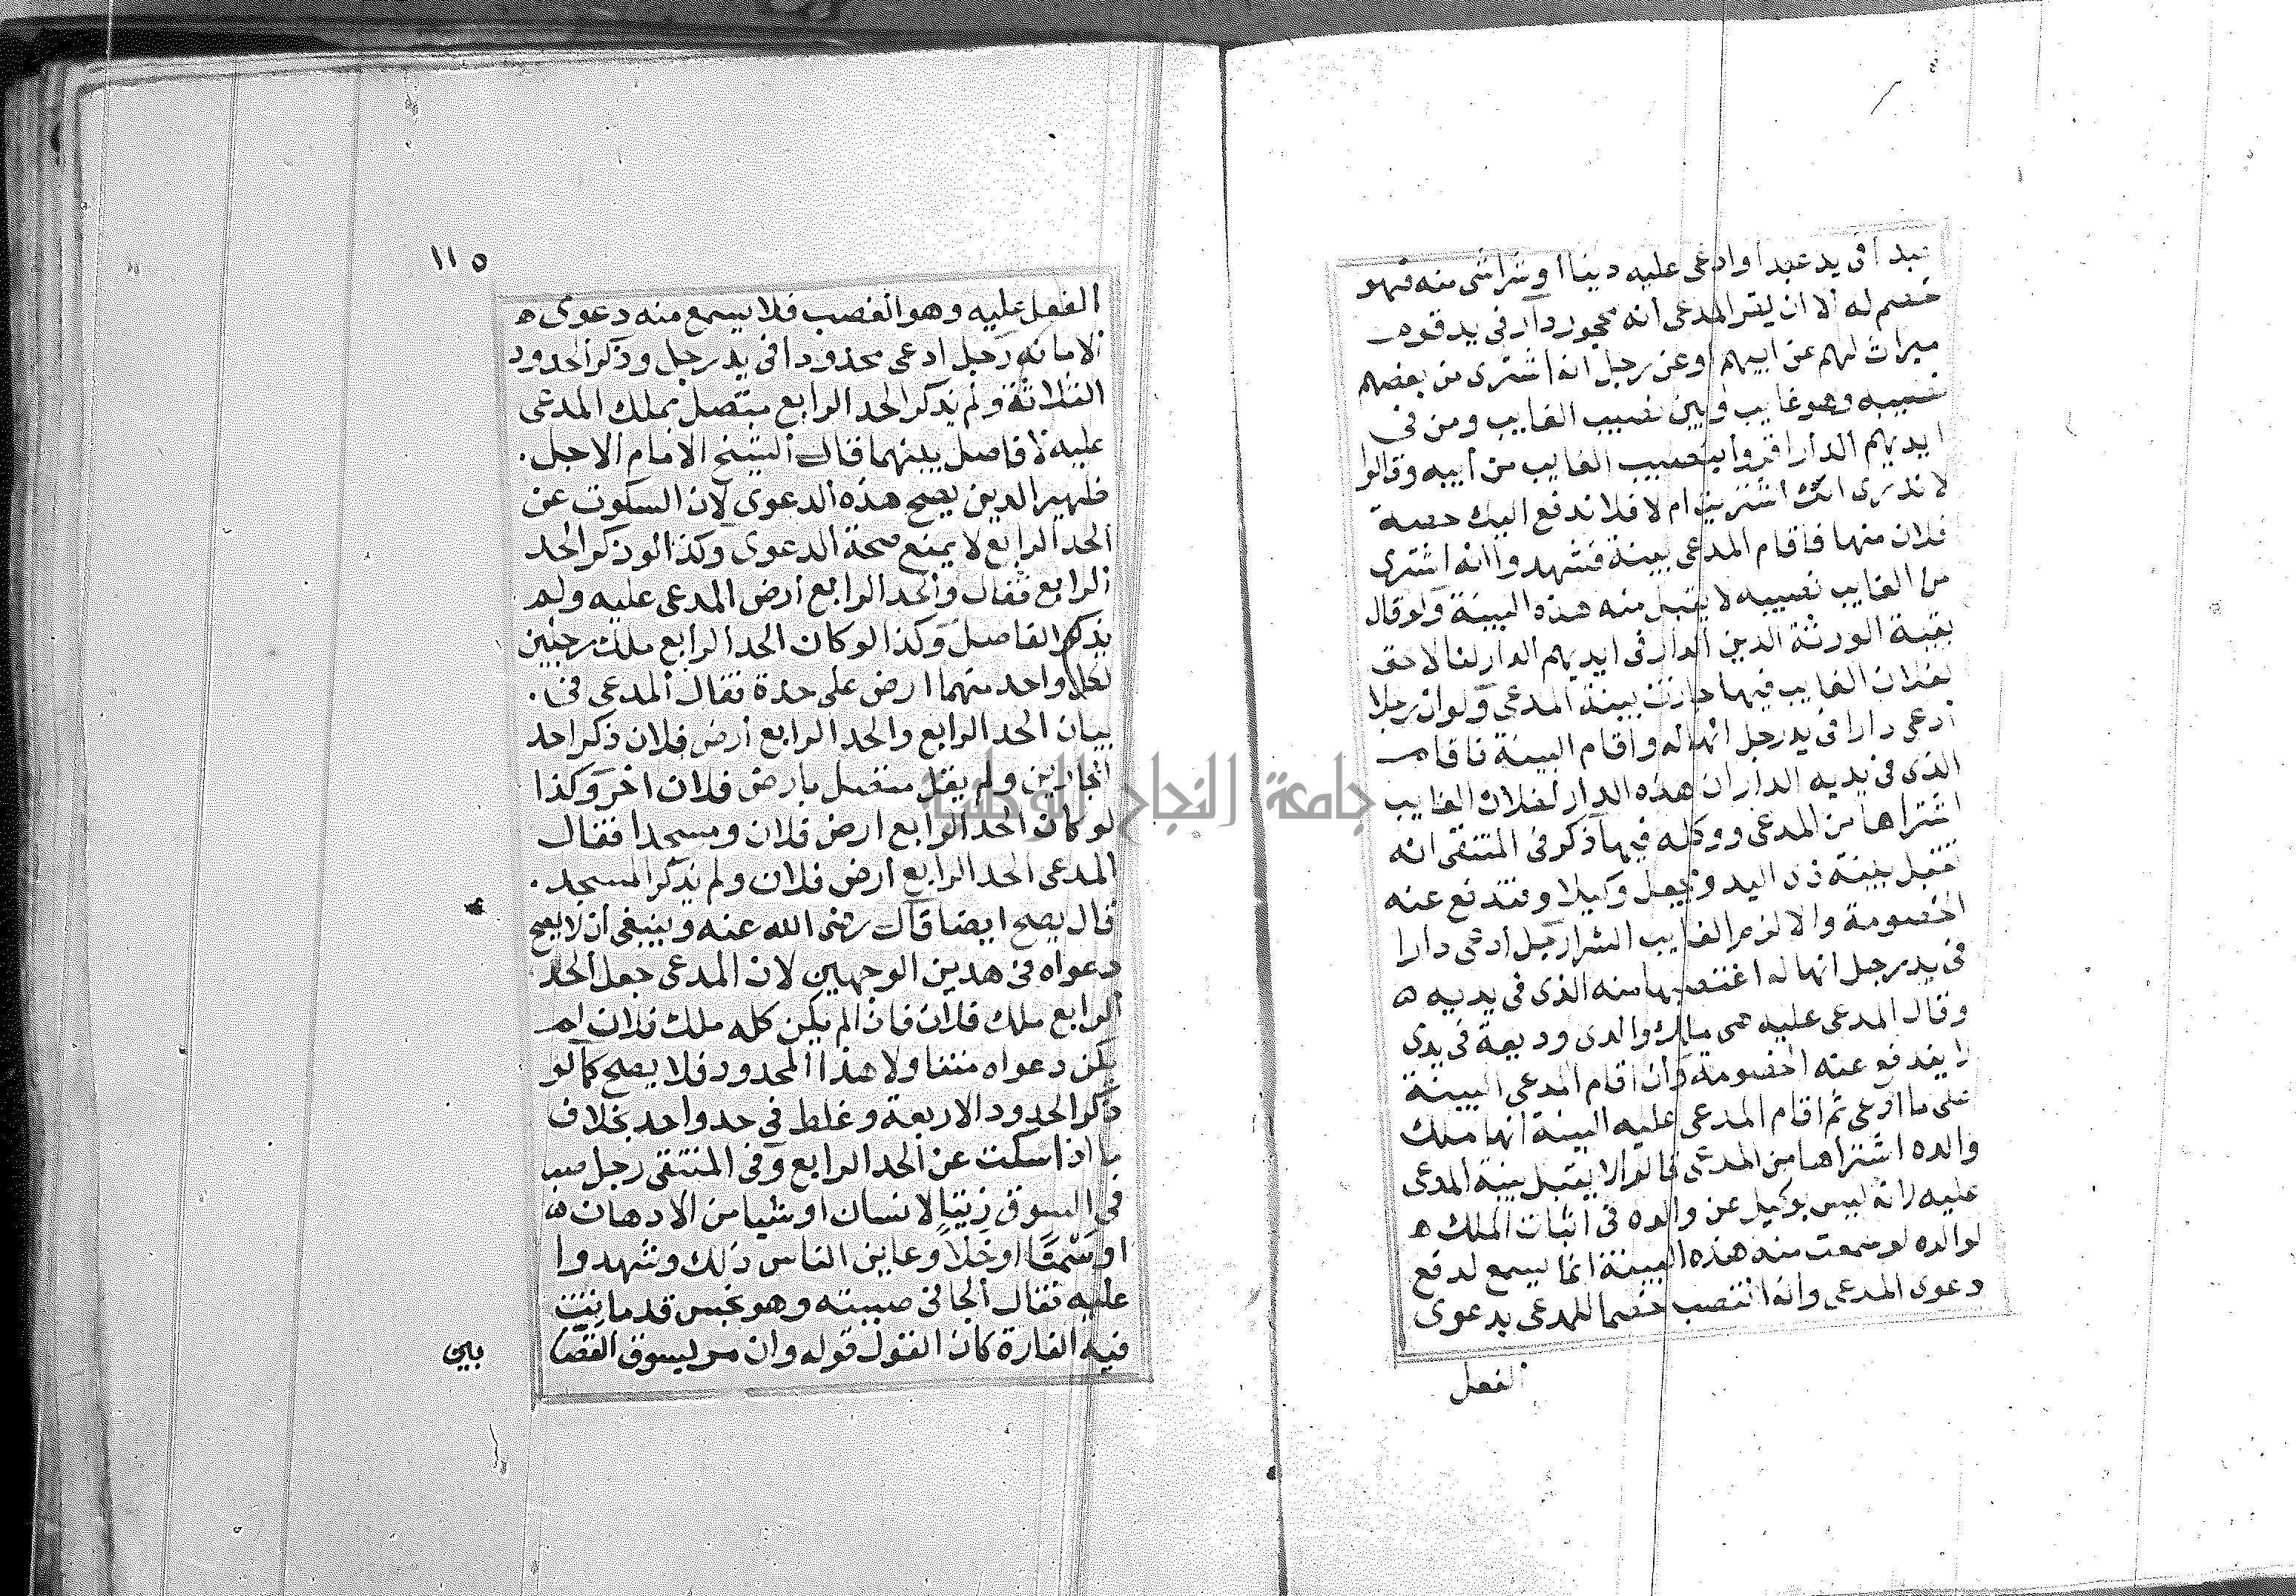 عبدا فى يد عبد او ادعى عليه دينا او شراشى منه فهو
خصم له الا ان يقر المدعى انه محجور دار فى يد قوم
ميراث لهم عن ابيهم وعن رجل انه اشترى من بعضهم
نصيبه وهو غايب وبين نصيب الغايب ومن فى
ايديهم الدار اقروا بنصيب الغايب من ابيه وقالوا
لا ندرى انك اشتريت ام لا فلا ندفع اليك حصة
فلان منها فاقام المدعى بينة فشهدوا انه اشترى
من الغايب نصيبه لا يقبل منه هذه البينة ولو قال
بقية الورثة الدين الدار فى ايديهم الدار لنا لا حق
لفلان الغايب فيها جازت بينة المدعى ولو ان رجلا
ادعى دارا فى يد رجل انها له واقام البينة فاقام
الذى فى يديه الدار ان هذه الدار لفلان الغايب
اشتراها من المدعى ووكله فيها ذكر فى المنتقى انه
تقبل بينة ذى اليد ويجعل وكيلا وتندفع عنه
الخصومة والا لزم الغايب الشرا رجل ادعى دارا
فى يد رجل انها له اغتصبها منه الذى فى يديه ه
وقال المدعى عليه هى ملك والدى وديعة فى يدى
لا يندفع عنه الخصومة وان اقام المدعى البينة
على ما ادعى ثم اقام المدعى عليه البينة انها ملك
والده اشتراها من المدعى قالوا لا يقبل بينة المدعى
عليه لانه ليس بوكيل عن والده فى اثبات الملك ه
لوالده لو سمعت منه هذه البينة انما يسمع لدفع
دعوى المدعى وانه انتصب خصما للمدعى بدعوى
الفعل
١١٥
الفعل عليه وهو الغصب فلا يسمع منه دعوى ه
الامانه رجل ادعى محدودا فى يد رجل وذكر الحدود
الثلاثة ولم يذكر الحد الرابع متصل بملك المدعى
عليه لا فاصل بينهما قال الشيخ الامام الاجل .
ظهير الدين يصح هذه الدعوى لان السكوت عن
الحد الرابع لا يمنع صحة الدعوى وكذا لو ذكر الحد
الرابع فقال والحد الرابع ارض المدعى عليه ولم
يذكر الفاصل وكذا لو كان الحد الرابع ملك رجلين
لكل واحد منهما ارض على حدة فقال المدعى فى .
بيان الحد الرابع والحد الرابع ارض فلان ذكر احد
الجارين ولم يقل متصل بارض فلان اخر وكذا
لو كان الحد الرابع ارض فلان ومسجدا فقال
المدعى الحد الرابع ارض فلان ولم يذكر المسجد .
قال يصح ايضا قال رضى الله عنه وينبغى ان لا يصح
دعواه فى هدين الوجهين لان المدعى جعل الحد
الرابع ملك فلان فاذا لم يكن كله ملك فلان لم
يكن دعواه متنا ولا هذا المحدود فلا يصح كما لو
ذكر الحدود الاربعة وغلط فى حد واحد بخلاف
ما اذا سكت عن الحد الرابع وفى المنتقى رجل صب
فى السوق زيتا لانسان او شيا من الادهان ه
او سمنا او خلا وعاين الناس ذلك وشهدوا
عليه فقال الجانى صببته وهو نجس قد ماتت
فيه الفارة كان القول قوله وان مر بسوق القصا
بين
جامعة النجاح الوطنية